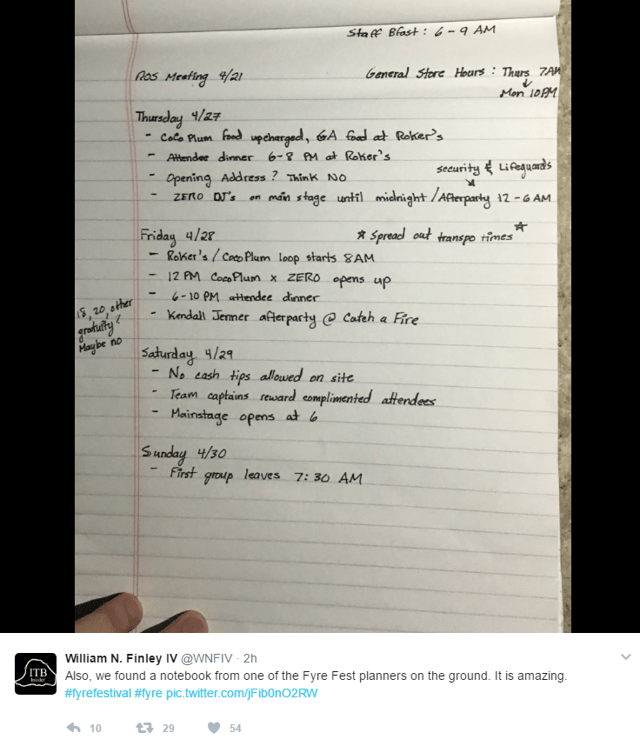 Staff Bfast : 6 - 9 AM
ROS Meeting 4/21
General Store Hours : Thurs 7AM
↓
Mon 10PM
Thursday 4/27
- CoCo Plum food upcharged, GA food at Roker's
- Attendee dinner 6-8 PM at Roker's
- Opening Address? Think NO
security & Lifeguards
- ZERO DJ's on main stage until midnight / Afterparty 12 - 6 AM
Friday 4/28
☆ Spread out transpo times ☆
- Roker's / CocoPlum loop starts 8AM
- 12 PM CocoPlum x ZERO opens up
- 6-10 PM attendee dinner
- Kendall Jenner afterparty @ Catch a Fire
18, 20, other
gratuity?
Maybe no
Saturday 4/29
- No cash tips allowed on site
- Team captains reward complimented attendees
- Mainstage opens at 6
Sunday 4/30
- First group leaves 7:30 AM
ITB
William N. Finley IV @WNFIV · 2h
Also, we found a notebook from one of the Fyre Fest planners on the ground. It is amazing.
#fyrefestival #fyre pic.twitter.com/jFib0nO2RW
10 29 54